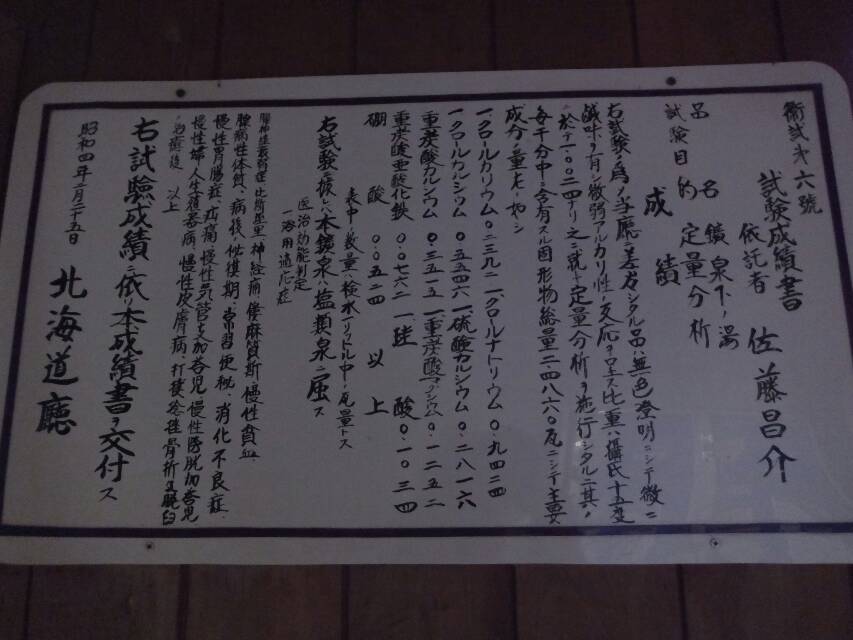 衛試才六號
試験成績書
依託者 佐藤昌介
品名 鑛泉下ノ湯
試験目的 定量分析
成績
右試験ノ為ノ当廳ニ差出シタル品ハ無色澄明ニシテ微ニ
鹹味ヲ有シ微弱アルカリ性ノ反応ヲ呈ス比重ハ攝氏十五度
ニ於テ一.〇〇二四ナリ之ニ就キ定量分析ヲ施行シタルニ其ノ
毎千分中ニ含有スル固形物総量二.四八六〇瓦ニシテ主要
成分ノ量左ノ如シ
一クロールカリウム 〇.二三九二 一、クロールナトリウム 〇.九四二四
一クロールカルシウム 〇.五五四六 一硫酸カルシウム 〇.二八一六
重炭酸カルシウム 〇.三五一五 一重炭酸マグシウム 〇.一二五二
重炭酸亜酸化鉄 〇.〇〇七六二 一珪酸 〇.一〇三四
硼酸 〇.〇五二四 以上
表中ノ数量ハ検水一リトル中ノ瓦量トス
右試験ニ拠レハ本鑛泉ハ塩類泉ニ属ス
医治効能判定
一浴用適応症
神経衰弱症 比斯垤里 神経痛 僂麻質斯 慢性貧血
腺病性体質、病後ノ恢復期、常習便秘、消化不良症、
慢性胃腸症、疝痛 慢性気管支加答児 慢性膀胱加答児
慢性婦人生殖器病、慢性皮膚病 打撲 捻挫 骨折及脱臼
ノ治癒後 以上
右試験成績ニ依リ本成績書ヲ交付ス
昭和四年二月二十五日
北海道廳